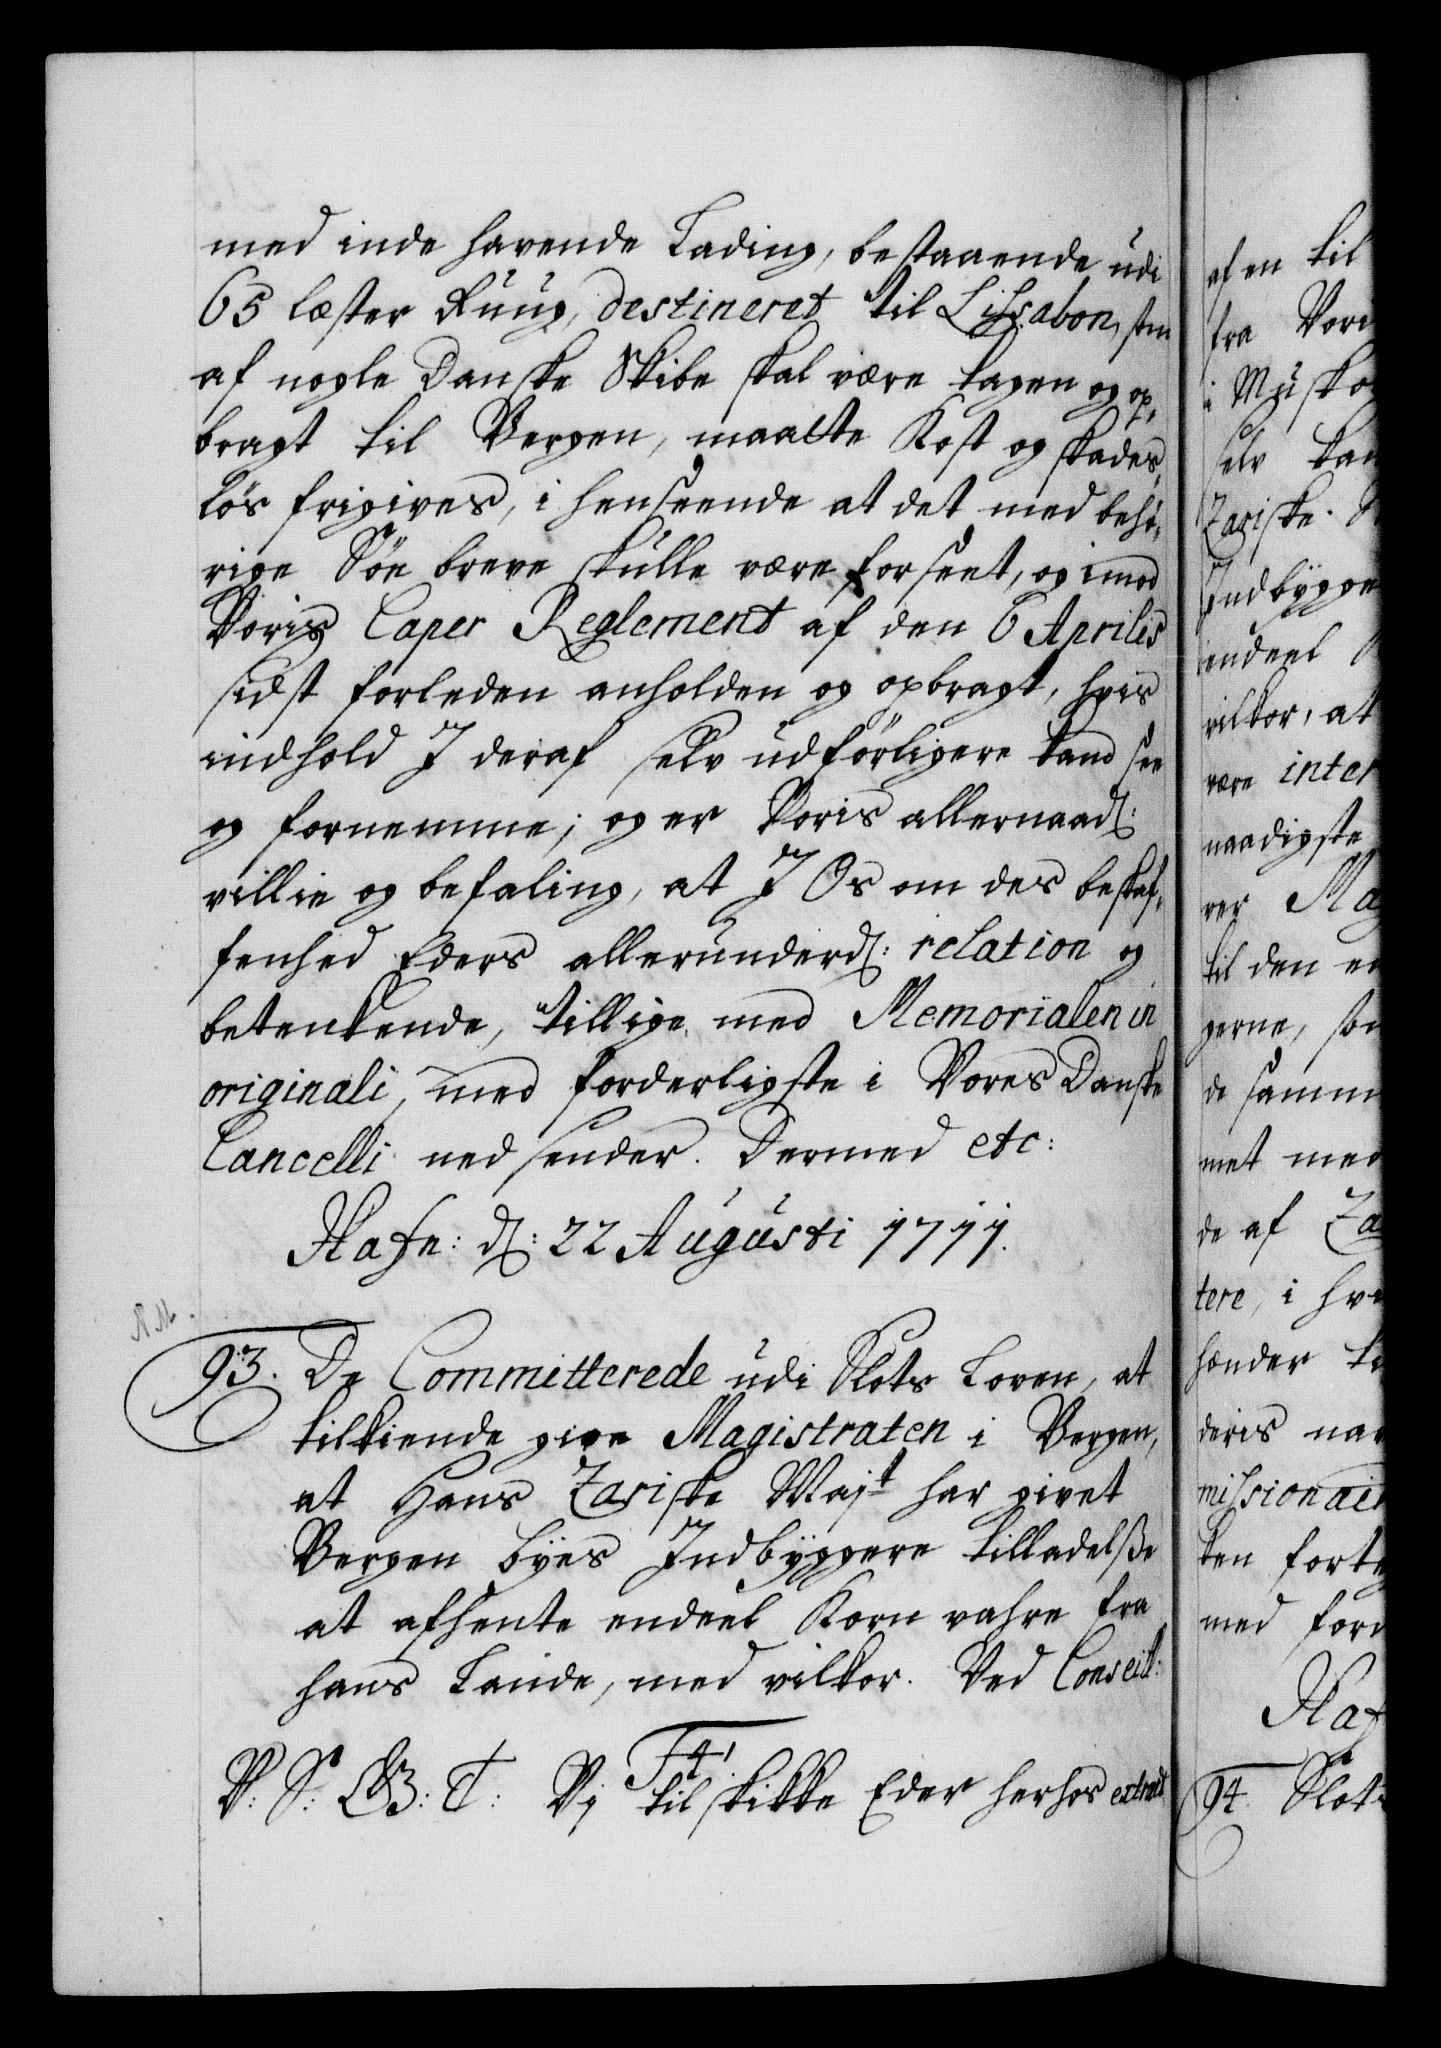 med inde havende Lading, bestaaende udi
65 læster Ruug, destineret til Lissabon, som
af nogle Danske Skibe skal være tagen og op-
bragt til Bergen, maatte Kost og skades-
løs frigives, i henseende at det med behø-
rige Söe breve skulle være forseet, og imod
Voris Caper Reglement af den 6 Aprilis
sidst forleden anholden og opbragt, hvis
indhold I deraf selv udförligere kand see
og fornemme; og er Voris allernaad:
villie og befaling, at I Os om des beskaf-
fenhed Eders allerunderd: relation og
betenkende, tillige med Memorialen in
originali, med forderligste i Vores Danske
Cancelli ned sender. Dermed etc:
Hafn: d: 22 Augusti 1711.
N.M.
93. De Committerede udi Slots Loven, at
tilkiende give Magistraten i Bergen,
at Hans Zariske Majt har givet
Bergen byes Indbyggere tilladelße
at afhente endeel Korn vahre fra
hans Lande, med vilkor. Ved Conseill:
F4.
V: S: G B: T: Vj til skikke Eder herhos extract
af en til
fra Vori
i Musko
selv kan
Zariske.
Indbygge
endeel
vilkor, at
være inter
naadigste
ver Mag
til den en
gerne, som
de samm
met med
de af Za
tere, i hvi
hænder
deris nav
missionair
ken forte
med ford
Haf
94. Slots